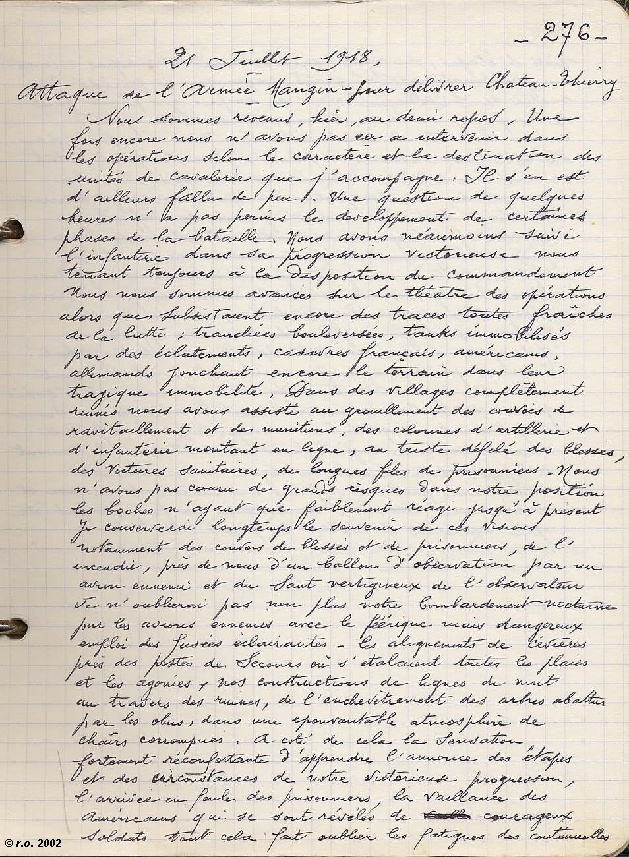 - 276 -
21 Juillet 1918.
Attaque de l'Armée Mangin - pour délivrer Chateau-Thierry
Nous sommes revenus, hier, au demi repos. Une
fois encore nous n'avons pas eu à intervenir dans
les opérations selon le caractère et la destination des
unités de cavalerie que j'accompagne. Il s'en est
d'ailleurs fallu de peu. Une question de quelques
heures n'a pas permis le developpement de certaines
phases de la bataille. Nous avons néanmoins suivi
l'infanterie dans sa progression victorieuse nous
tenant toujours à la disposition du commandement
Nous nous sommes avancés sur le théâtre des opérations
alors que subsistaient encore des traces toutes fraîches
de la lutte ; tranchées bouleversées, tanks immobilisés
par des éclatements, cadavres français, américains,
allemands jonchant encore le terrain dans leur
tragique immobilité. Dans des villages complètement
ruinés nous avons assisté au grouillement des convois de
ravitaillement et de munitions, des colonnes d'artillerie et
d'infanterie montant en ligne, au triste défilé des blessés,
des voitures sanitaires, de longues files de prisonniers. Nous
n'avons pas couru de grands risques dans notre position
les boches n'ayant que faiblement réagi jusqu'à présent
Je conserverai longtemps le souvenir de ces visions
notamment des convois de blessés et de prisonniers, de l'
incendie, près de nous d'un ballon d'observation par un
avion ennemi et du saut vertigineux de l'observateur
Je n'oublierai pas non plus notre bombardement nocturne
par les avions ennemis avec le féerique mais dangereux
emploi des fusées éclairantes - les alignements de civières
près des postes de Secours où s'étalaient toutes les plaies
et les agonies, nos constructions de lignes de nuit
au travers des ruines, de l'enchevêtrement des arbres abattus
par les obus, dans une épouvantable atmosphère de
chairs corrompues. A coté de cela la sensation
fortement réconfortante d'apprendre l'annonce des étapes
et des circonstances de notre victorieuse progression,
l'arrivée en foule des prisonniers, la vaillance des
Americains qui se sont révélés de courageux
soldats tout cela fait oublier les fatigues des continuelles
© r.o. 2002